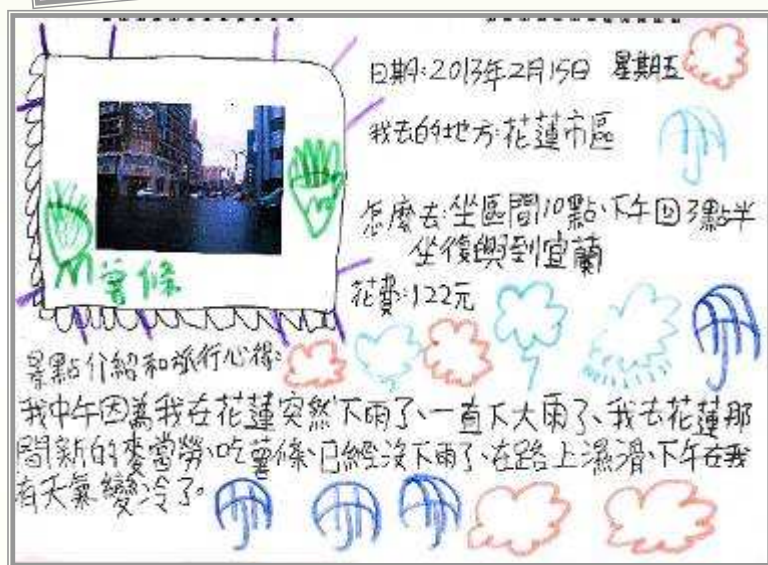 日期:2013年2月15日 星期五
我去的地方:花蓮市區
怎麼去:坐區間10點、下午回3點半
坐復興到宜蘭
花費:122元
薯條
景點介紹和旅行心得:
我中午因為我在花蓮突然下雨了、一直下大雨了、我去花蓮那
間新的麥當勞、吃薯條、已經沒下雨了、在路上濕滑、下午在我
有天氣變冷了。